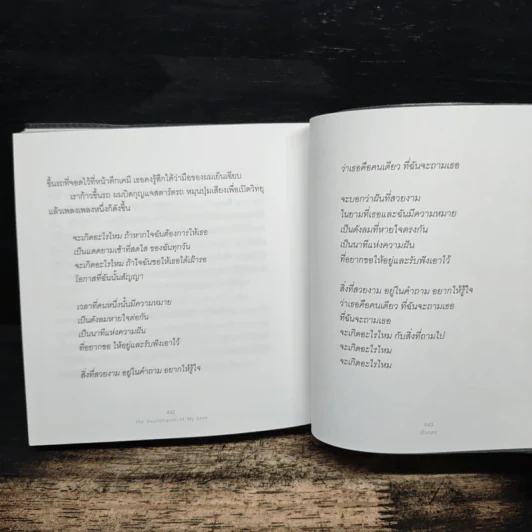 ขึ้นรถที่จอดไว้ที่หน้าตึกเคมี เธอคงรู้สึกได้ว่ามือของผมเย็นเฉียบ
เราก้าวขึ้นรถ ผมบิดกุญแจสตาร์ตรถ หมุนปุ่มเสียงเพื่อเปิดวิทยุ
แล้วเพลงเพลงหนึ่งก็ดังขึ้น
จะเกิดอะไรไหม ถ้าหากใจฉันต้องการให้เธอ
เป็นแดดยามเช้าที่สดใส ของฉันทุกวัน
จะเกิดอะไรไหม ถ้าใจฉันขอให้เธอได้เฝ้ารอ
โอกาสที่ฉันนั้นสัญญา
เวลาที่คนหนึ่งนั้นมีความหมาย
เป็นดังลมหายใจต่อกัน
เป็นนาทีแห่งความฝัน
ที่อยากขอ ให้อยู่และรับฟังเอาไว้
สิ่งที่สวยงาม อยู่ในคำถาม อยากให้รู้ใจ
442
The Soundtrack of My Love
ว่าเธอคือคนเดียว ที่ฉันจะถามเธอ
จะบอกว่าฝันที่สวยงาม
ในยามที่เธอและฉันมีความหมาย
เป็นดังลมที่หายใจตรงกัน
เป็นนาทีแห่งความฝัน
ที่อยากขอให้อยู่และรับฟังเอาไว้
สิ่งที่สวยงาม อยู่ในคำถาม อยากให้รู้ใจ
ว่าเธอคือคนเดียว ที่ฉันจะถามเธอ
ที่ฉันจะถามเธอ
จะเกิดอะไรไหม กับสิ่งที่ถามไป
จะเกิดอะไรไหม
จะเกิดอะไรไหม
443